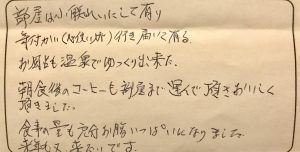 部屋は小綺れいにして有り
気付かい(心使い等)行き届いて有る
お風呂も温泉でゆっくり出来た。
朝食後のコーヒーも部屋まで運んで頂きおいしく
頂きました。
食事の量も充分お腹いっぱいになりました
来年も又来たいです。